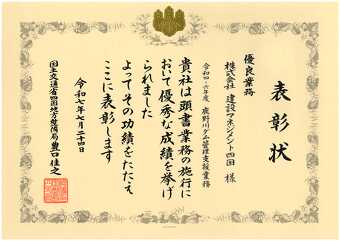 表彰状
優良業務
株式会社 建設マネジメント四国 様
令和四-六年度 鹿野川ダム管理支援業務
貴社は頭書業務の施行に
おいて優秀な成績を挙げ
られました
よってその功績をたたえ
ここに表彰します
令和七年七月二十四日
国土交通省四国地方整備局長 豊口佳之